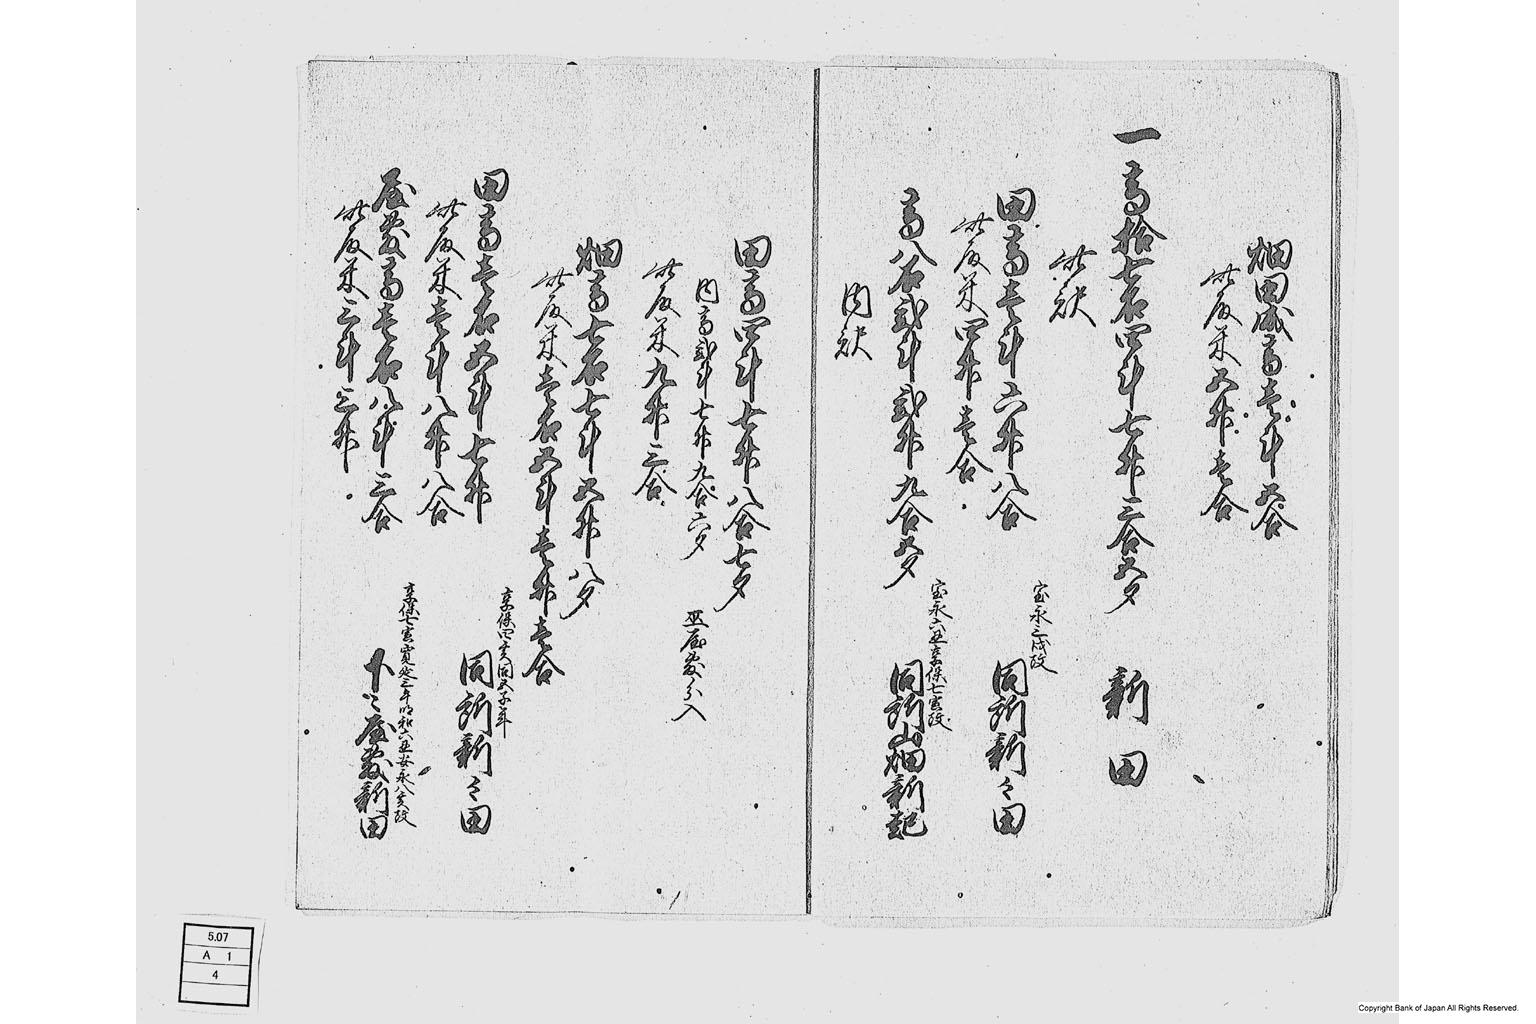 畑田成高壱斗五合
此反米五升壱合
一高拾七石四斗七升三合五夕 新田
此訳
田高壱斗六升八合 宝永三戌改 同所新々田
此反米四升壱合
高八石弐斗弐升九合五夕 宝永六丑享保七寅改 同所山畑新起
内訳
田高四斗七升八合七夕
内高弐斗七升九合六夕 丑屋敷分入
此反米九升三合
畑高七石七斗五升八夕
此反米壱石五斗壱升壱合
田高壱石五斗七升 享保四亥同五子年 同所新々田
此反米壱斗八升八合
屋敷高壱石八斗三合 享保七寅寛延三午明和六丑安永八亥改 下々屋敷新田
此反米三斗三升
5.07
A 1
4
Copyright Bank of Japan All Rights Reserved.